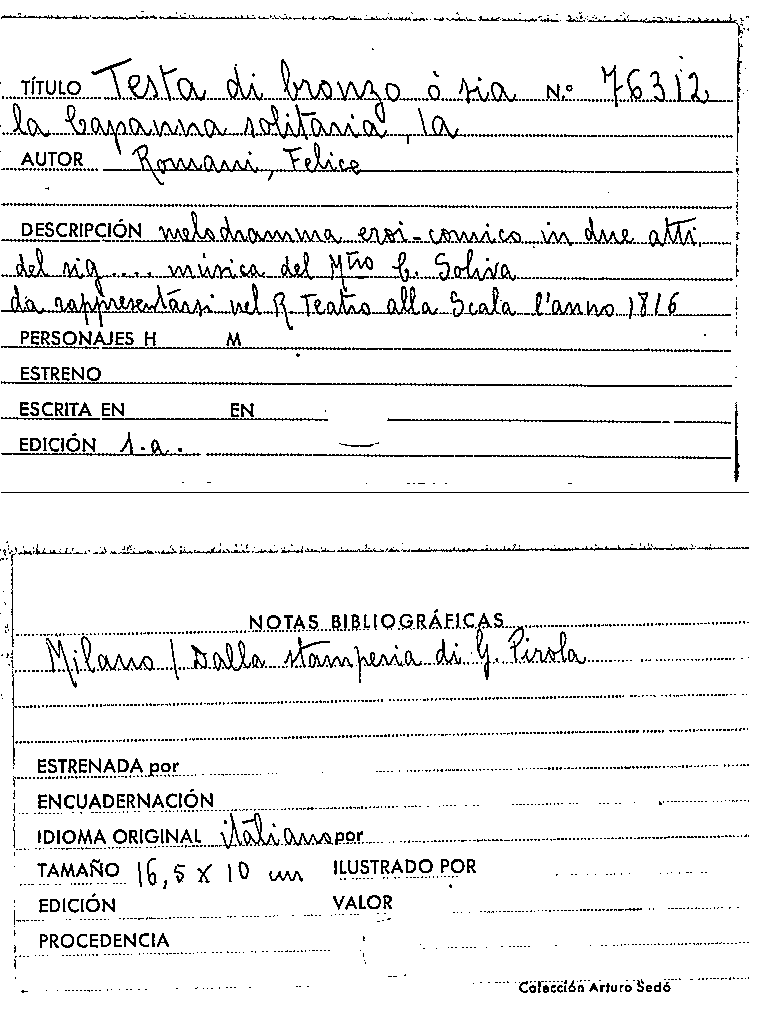 TÍTULO Testa di bronzo ó sia N.º 76312
la Capanna solitaria, la
AUTOR Romani, Felice
DESCRIPCIÓN melodramma eroi-comico in due atti
del sig.... música del Mtro C. Soliva
da rappresentarsi nel R. Teatro alla Scala l'anno 1816
PERSONAJES H M
ESTRENO
ESCRITA EN EN
EDICIÓN 1.a.
NOTAS BIBLIOGRÁFICAS
Milano / Dalla stamperia di G. Pirola
ESTRENADA por
ENCUADERNACIÓN
IDIOMA ORIGINAL italiano por
TAMAÑO 16,5 X 10 cm ILUSTRADO POR
EDICIÓN VALOR
PROCEDENCIA
Colección Arturo Sedó